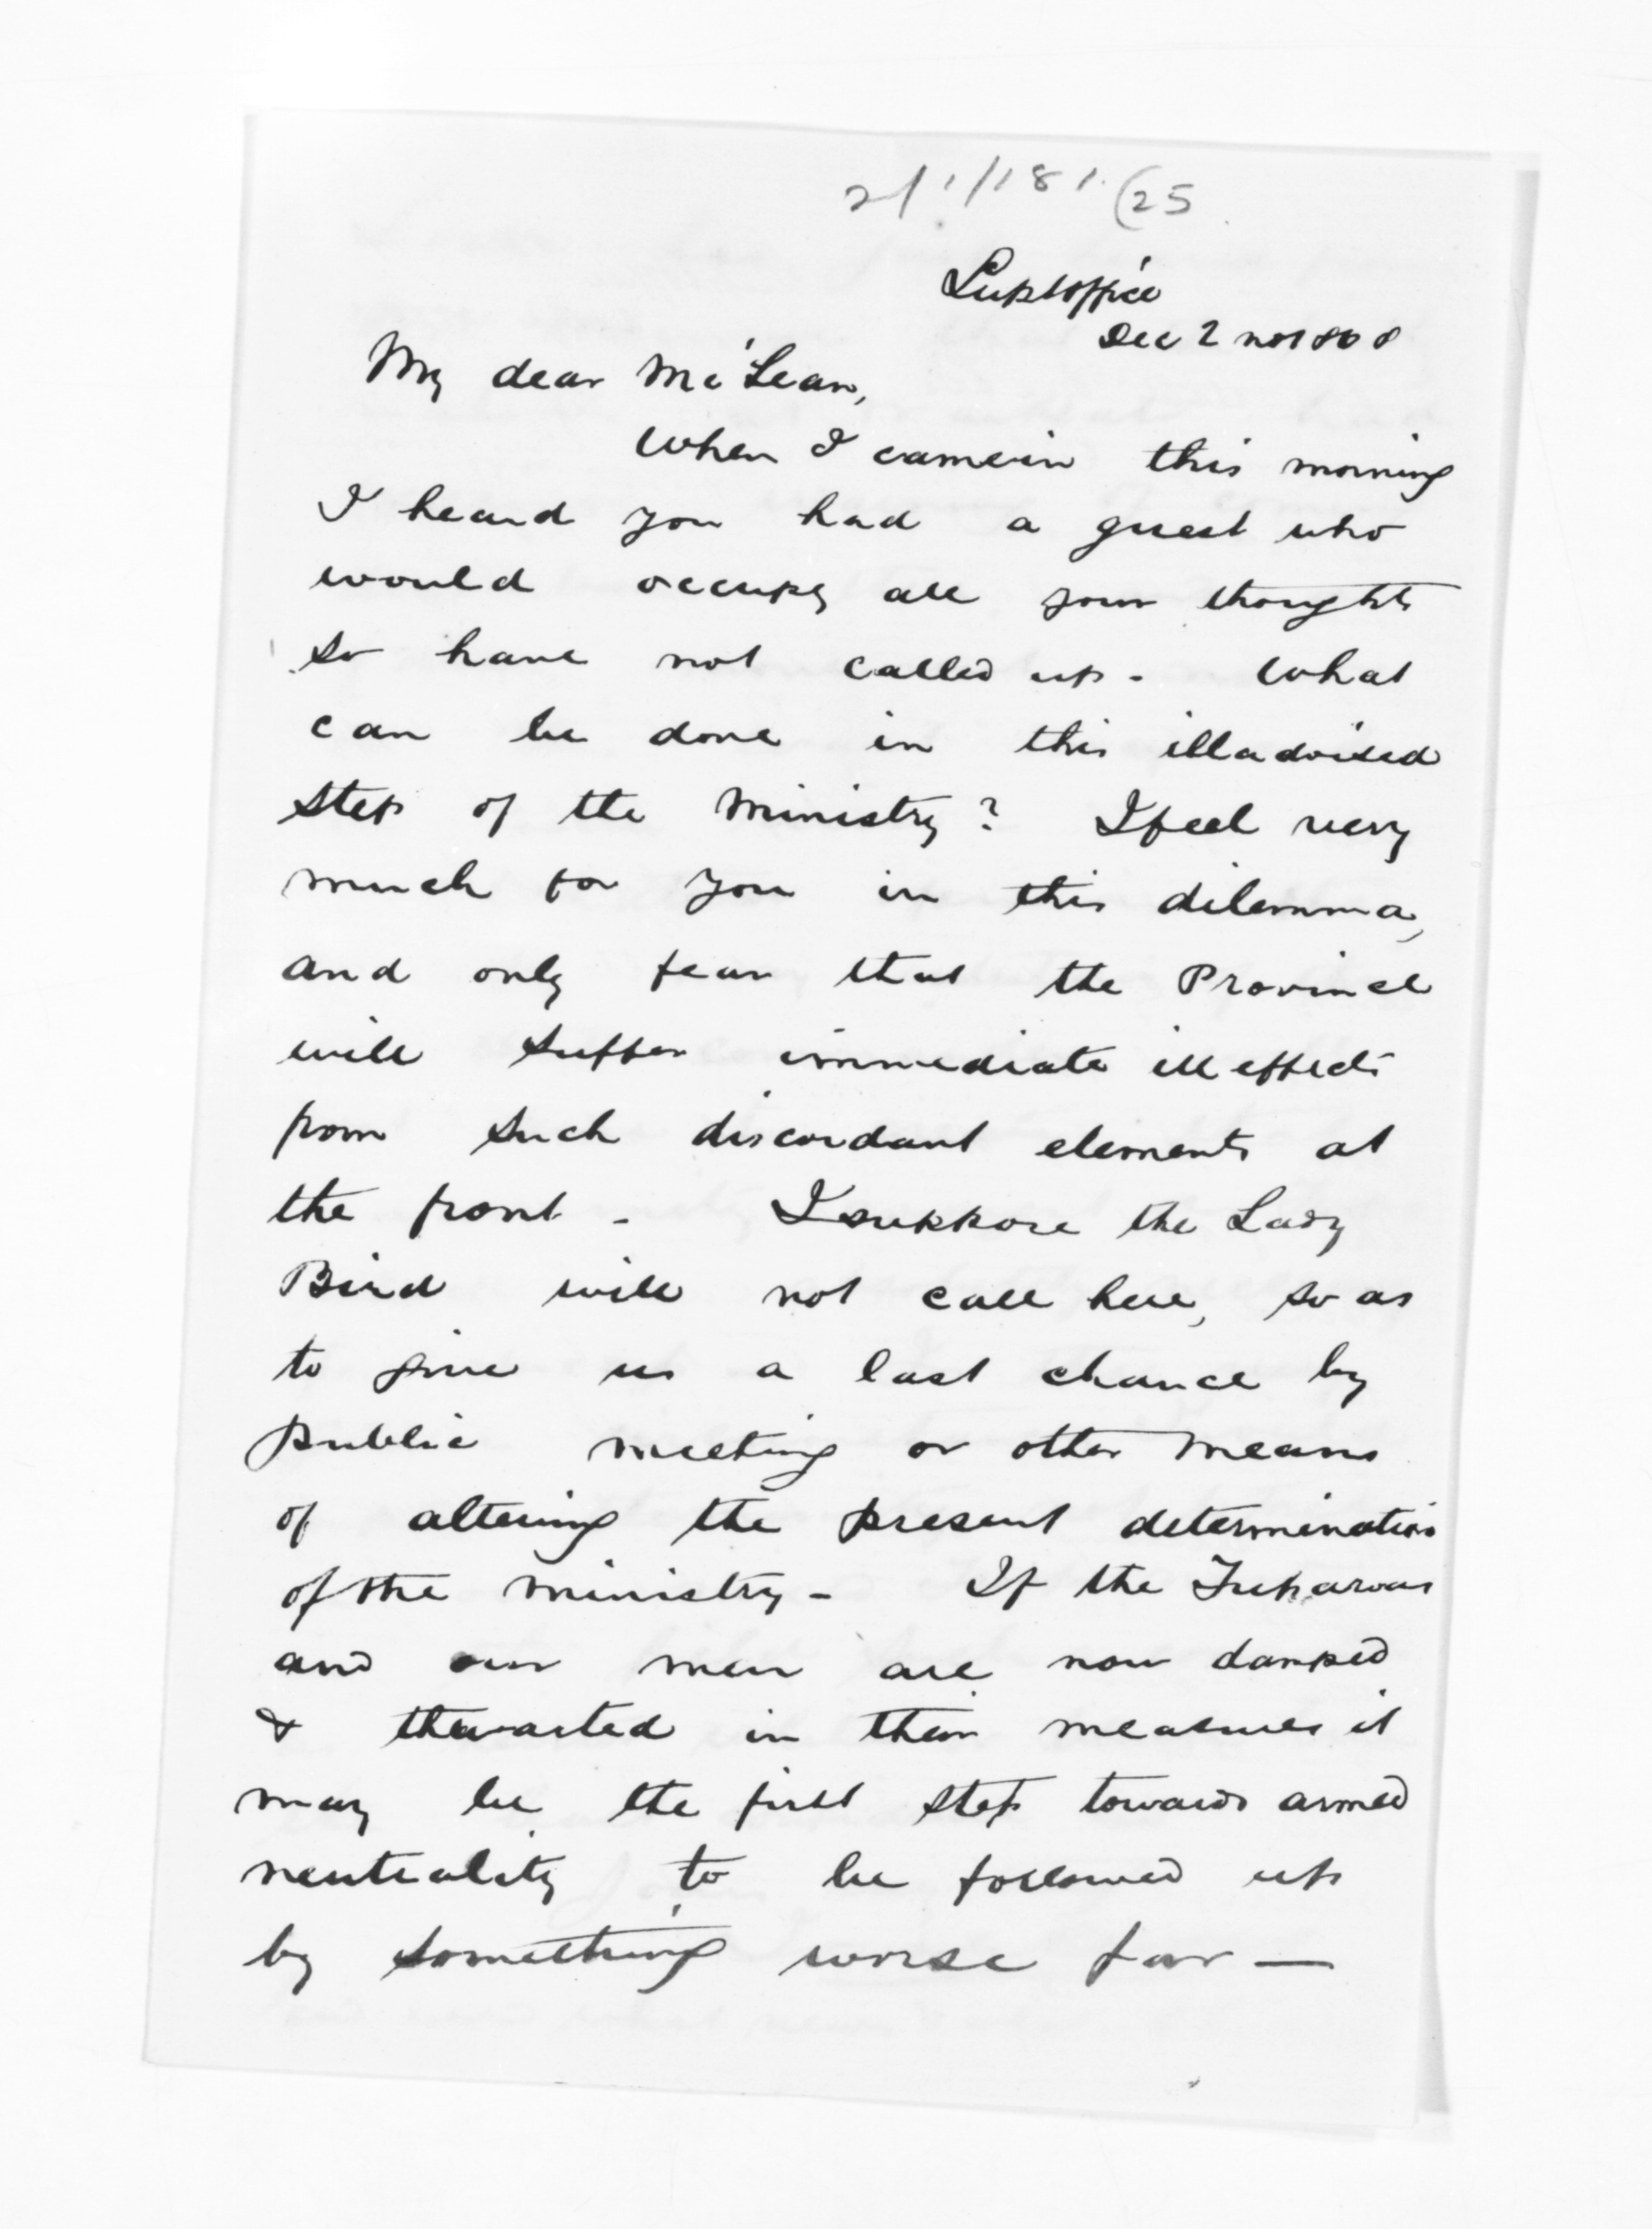 2/1/181 (25
Supt office
Dec 2nd 1868
My dear McLean,
When I came in this morning
I heard you had a guest who
would occupy all your thoughts
so have not called up - What
can be done in this illadvised
step of the Ministry? I feel very
much for you in this dilemma,
and only fear that the Province
will suffer immediate ill effects
from such discordant elements at
the front - I suppose the Lady
Bird will not call here, so as
to give us a last chance by
public meeting or other means
of altering the present determination
of the ministry - If the
and our men are now damped
& thwarted in their measures it
may be the first step towards armed
neutrality to be followed up
by something worse far —